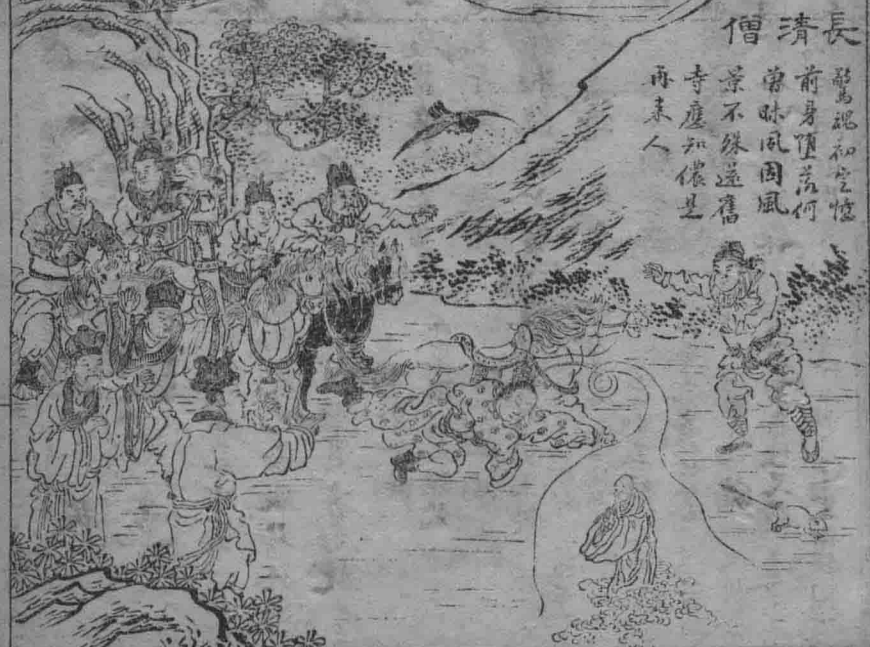 長清僧
驚魂初定憶
前身墮落何
曾昧夙因風
景不殊遊舊
寺應知儂是
再來人